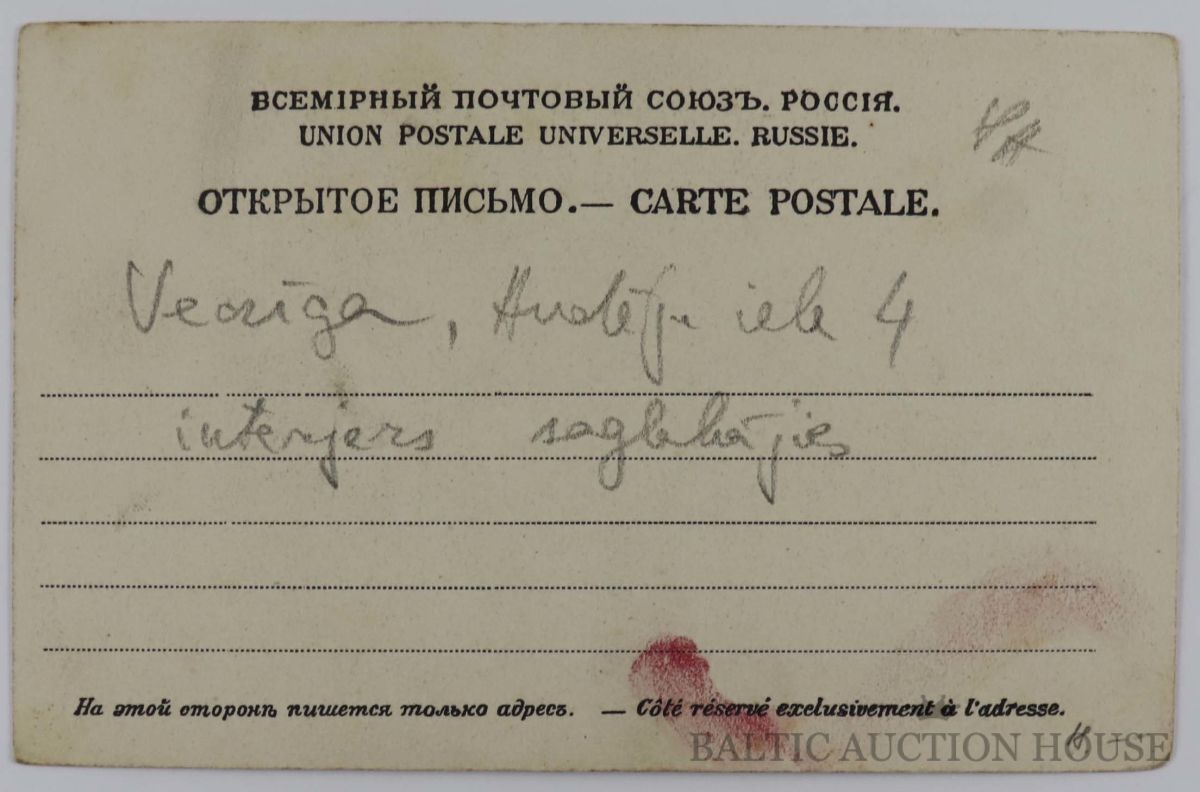 ВСЕМІРНЫЙ ПОЧТОВЫЙ СОЮЗЪ. РОССІЯ.
UNION POSTALE UNIVERSELLE. RUSSIE.
ОТКРЫТОЕ ПИСЬМО.— CARTE POSTALE.
Vecrīga, iela 4
interjers saglabājies
На этой сторонѣ пишется только адресъ. — Côté réservé exclusivement à l'adresse.
BALTIC AUCTION HOUSE